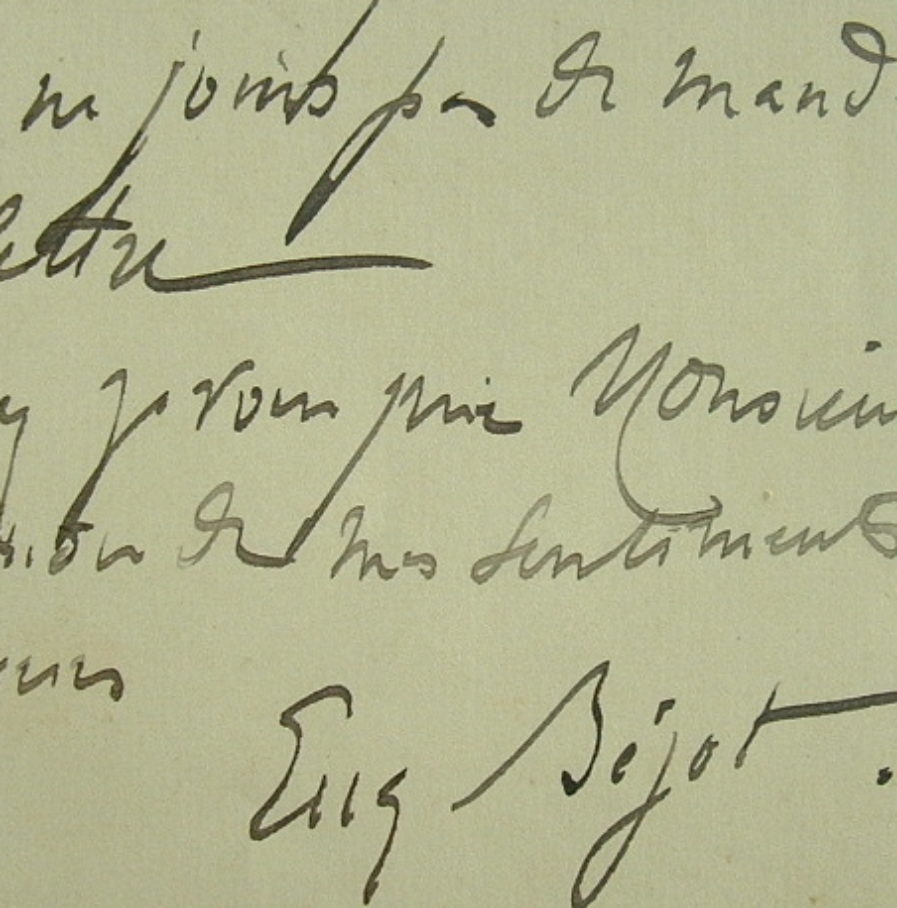 ne joins pas de mand
lettre
y je vous prie Monsieu
ition de mes sentiments
eurs
Eug Béjot.